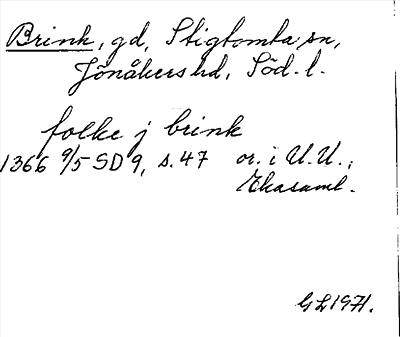 Brink, gd, Stigtomta sn,
Jönåkers hd, Söd. l.
folke j brink
1366 9/5 SD 9, s. 47 or. i U.U.,
Ekasaml.
GL 1971.